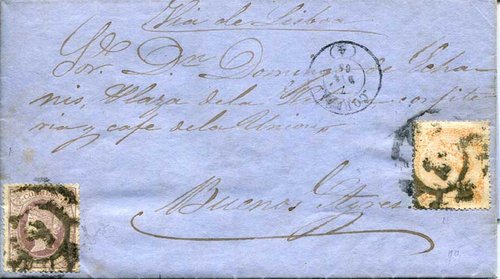 Via de Lisboa
Sor. Dn. Domingo
nis, Plaza de la confite
ria y cafe de la Union
Buenos Ayres.